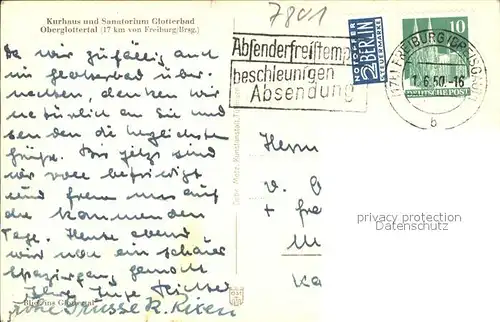 Kurhaus und Sanatorium Glotterbad
Oberglottertal (17 km von Freiburg/Brsg.)
7801
Absenderfreistempler
beschleunigen
Absendung
NOTOPFER
2 BERLIN
STEUERMARKE
10
DEUTSCHE POST
(17b) FREIBURG (BREISGAU)
6.50.-16
b
Da wir zufällig auch
im Glotterbad über-
nachten, denken wir
natürlich an Sie und
senden die herzlichsten
Grüße. Bis jetzt sind
wir voll befriedigt
und freuen uns auf
die kommenden
Tage. Heute abend
wird noch ein schöner
Spaziergang gemacht
Ihre Inge Richter
Frohe Grüsse R. Rixen
Blick ins Glottertal
Herrn
v.
+ Fra
privacy protection
www.ansichtskarten-center.de